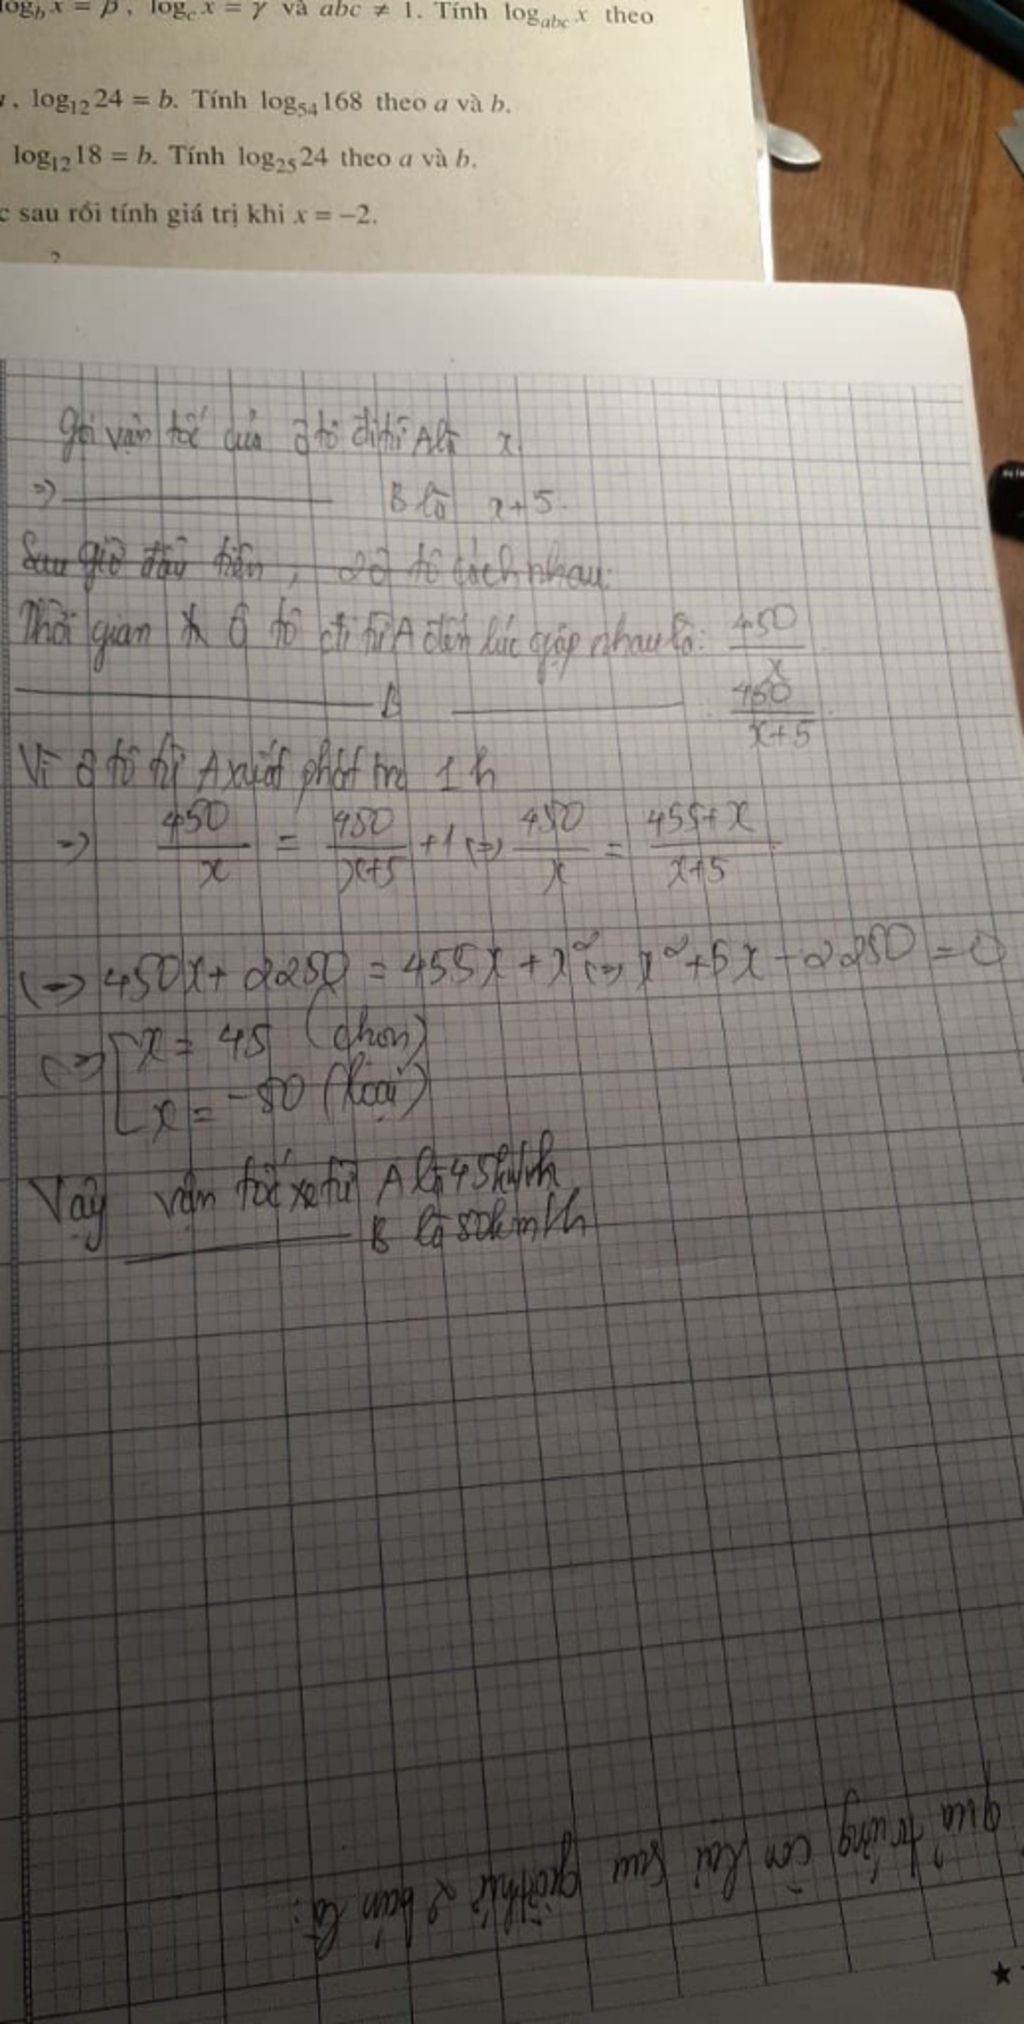 log_b x = β, log_c x = γ và abc ≠ 1. Tính log_abc x theo
, log₁₂24 = b. Tính log₅₄168 theo a và b.
log₁₂18 = b. Tính log₂₅24 theo a và b.
c sau rồi tính giá trị khi x = −2.
Gọi vận tốc của ô tô đi từ A là x
=> B là x+5.
Sau giờ đầu tiên, 2 ô tô cách nhau:
Thời gian ô tô đi từ A đến lúc gặp nhau là: 450/x
B 450/x+5
Vì ô tô từ A xuất phát trc 1h
=> 450/x = 450/x+5 +1 <=> 450/x = 455+x/x+5
<=> 450x + 2250 = 455x + x² <=> x² + 5x - 2250 = 0
<=> [ x = 45 (chọn)
x = -50 (loại)
Vậy vận tốc xe từ A là 45km/h
B là 50km/h
quả trứng còn lại sau giờ thứ 2 bán là: